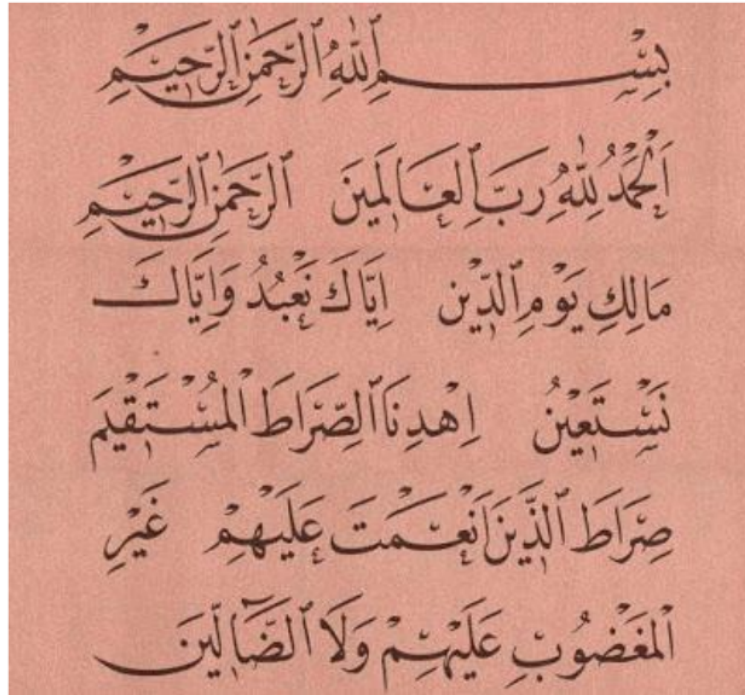 بِسْمِ اللّٰهِ الرَّحْمٰنِ الرَّحِيْمِ
اَلْحَمْدُ لِلّٰهِ رَبِّ الْعَالَمِينَ الرَّحْمٰنِ الرَّحِيْمِ
مَالِكِ يَوْمِ الدِّيْنِ اِيَّاكَ نَعْبُدُ وَاِيَّاكَ
نَسْتَعِيْنُ اِهْدِنَا الصِّرَاطَ الْمُسْتَقِيْمَ
صِرَاطَ الَّذِيْنَ اَنْعَمْتَ عَلَيْهِمْ غَيْرِ
الْمَغْضُوْبِ عَلَيْهِمْ وَلَا الضَّآلِّيْنَ